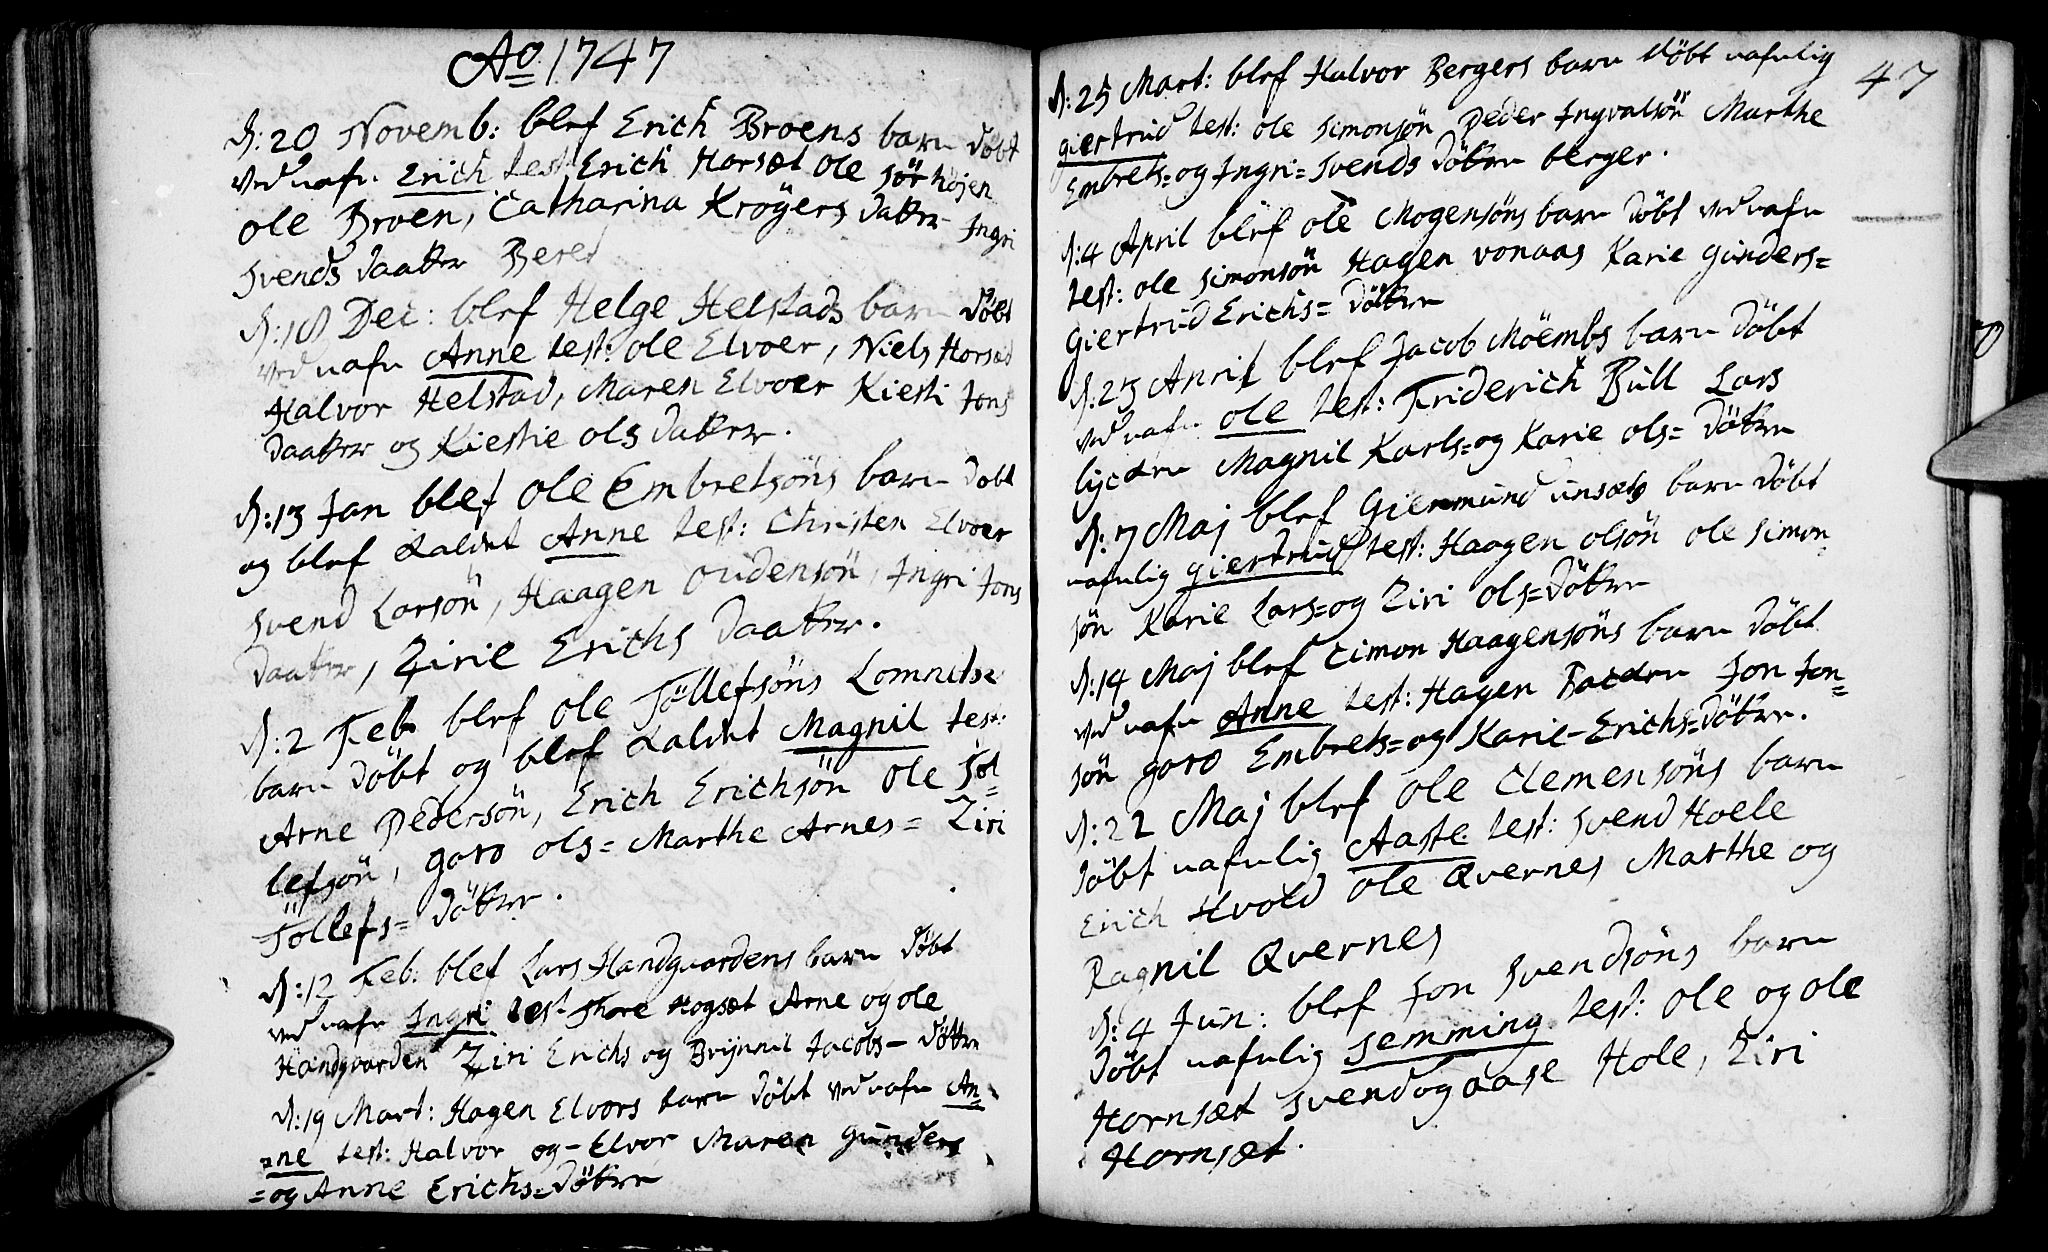 Ao 1747
D: 20 Novemb: blef Erich Broens barn döbt
ved nafn Erich test: Erich Horsæt Ole sörhöjen
Ole Broen, Catharina Krögers datter Ingri
Svends daatter
D: 18 Dec: blef Helge Helstads barn döbt
ved nafn Anne test: Ole Elvoer, Niels Horsæt
Halvor Helstad, Maren Elvoer Kiesti Jons
daatter og Kiestie Ols datter.
D: 13 Jan blef Ole Embretsöns barn döbt
og blef kaldet Anne test: Christen Elvoer
Svend Larsön, Haagen Oudensön, Ingri Jons
daatter, Zirie Erichs daatter.
D: 2 Feb blef Ole Töllefsöns Lomnitse
barn döbt og blef kaldet Magnil test:
Arne Pedersön, Erich Erichsön Ole Töl=
lefsön, goro ols= Marthe Arnes= Ziri
Töllefs= döttre.
D: 12 Feb: blef Lars Handgaardens barn döbt
ved nafn Ingri test Thore Hogsæt Arne og ole
Handgaarden Ziri Erichs og Brijnnil Jacobs= döttre
D: 19 Mart: Hagen Elvors barn döbt ved nafn An=
=ne test: Halvor og - Elvor Maren Gunders
=og Anne Erichs=döttre
47
D: 25 Mart: blef Halvor Bergers barn döbt nafnlig
giertrud test: ole Simonsön Peder Ingvalsön Marthe
Embrets= og Ingri= Svends döttre berger.
D: 4 April blef ole Mogensöns barn döbt ved nafn
test: ole Simonsön Hagen vonaas Karie Gunders=
Giertrud Erichs= döttre
D: 23 April blef Jacob Möembs barn döbt
ved nafn ole test: Friderich Bull Lars
lycdre Magnil Karls= og Karie ols= döttre
D: 7 Maj blef Giermund unsæts barn döbt
nafnlig giertrud test: Haagen olsön ole Simon
sön Karie Lars= og Ziri ols= döttre
D: 14 Maj blef Cimon Haagensöns barn döbt
ved nafn Anne test: Hagen Bacdre Jon Jon=
sön goro Embrets= og Karie- Erichs= döttre.
D: 22 Maj blef Ole Clemensöns barn
döbt nafnlig Aaste test: Svend Hoele
Erich Hvold Ole Qvernes Marthe og
Ragnil Qvernes
D: 4 Jun: blef Jon Svendsöns barn
döbt nafnlig Semming test: Ole og ole
Hornsæt Svend og aase Hole, Ziri
Hornsæt.